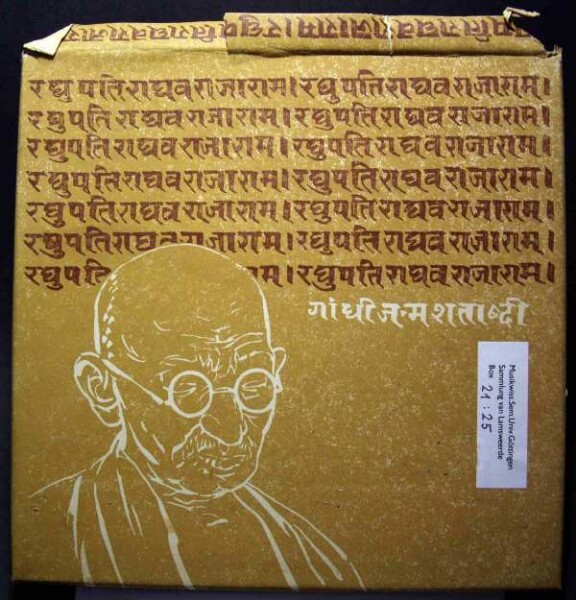 रघुपतिराघवराजाराम।रघुपतिराघवराजाराम
रघुपतिराघवराजाराम।रघुपतिराघवराजाराम।
रघुपतिराघवराजाराम।रघुपतिराघवराजाराम।
रघुपतिराघवराजाराम।रघुपतिराघवराजाराम।
रघुपतिराघवराजाराम।रघुपतिराघवराजाराम।
रघुपतिराघवराजाराम।रघुपतिराघवराजाराम।
रघुपतिराघवराजाराम।रघुपतिराघवराजाराम।
रघुपति राम।रघुपतिराघवराजाराम।
गांधीजन्मशताब्दी
Musikwiss.Sem.Univ.Göttingen
Sammlung van Lamsweerde
Box 21:25